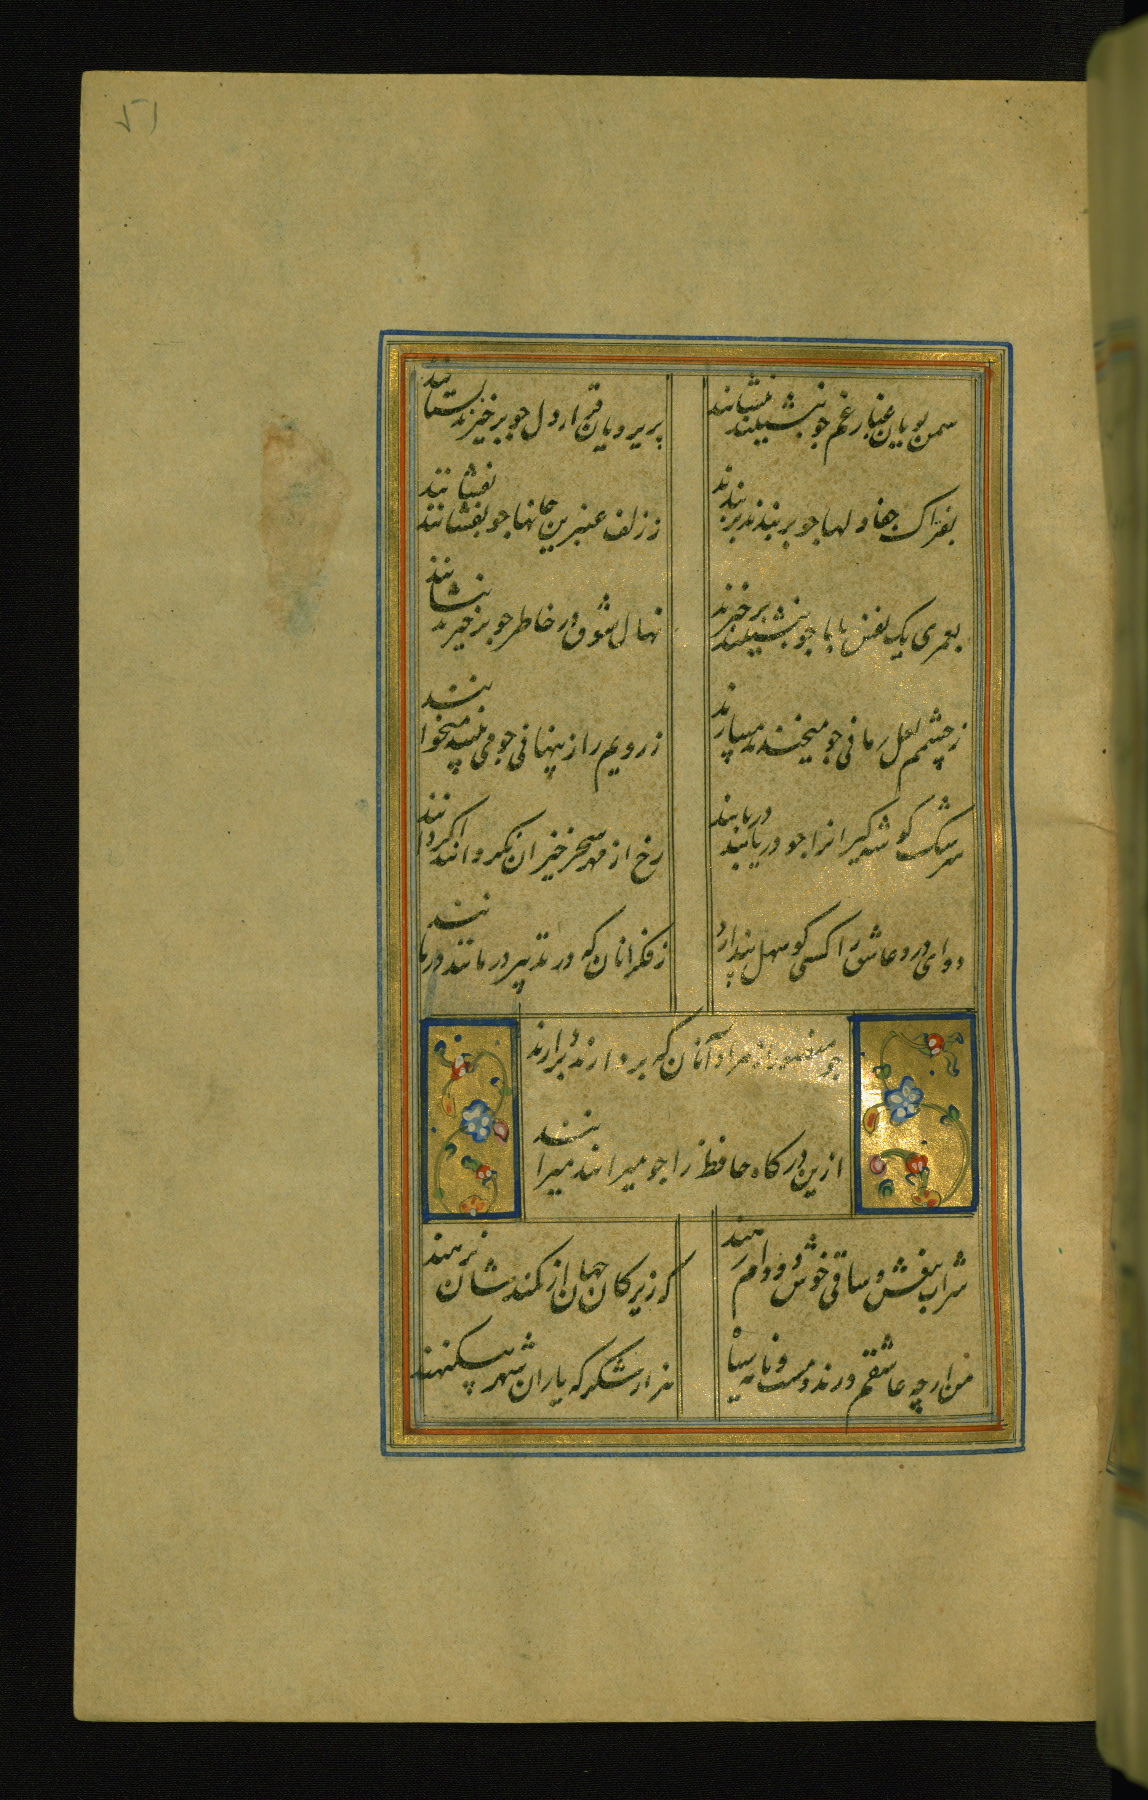 ۵۱
سمن بویان غبار غم چو بنشینند بنشانند
پریرویان قرار دل چو برخیزند بستانند
بفتراک جفا دلها چو بربندند بربندند
ز زلف عنبرین جانها چو بفشانند بفشانند
بعمری یک نفس با ما چو بنشینند برخیزند
نهال شوق در خاطر چو برخیزند بنشانند
ز چشمم لعل رمانی چو میخندند میبارند
ز رویم راز پنهانی چو می بینند میخوانند
سرشک گوشه گیرانرا چو دریابند دریابند
رخ از مهر سحرخیزان نگردانند اگر دانند
دوای درد عاشق را کسی کو سهل پندارد
ز فکر انان که در تدبیر درمانند درمانند
چو منصور از مراد آنان که بردارند بردارند
ازین درگاه حافظ را چو میرانند میرانند
شراب بیغش و ساقی خوش دو دام رهند
که زیرکان جهان از کمندشان نرهند
من ارچه عاشقم و رند و مست و نامه سیاه
هزار شکر که یاران شهر بیگنهند